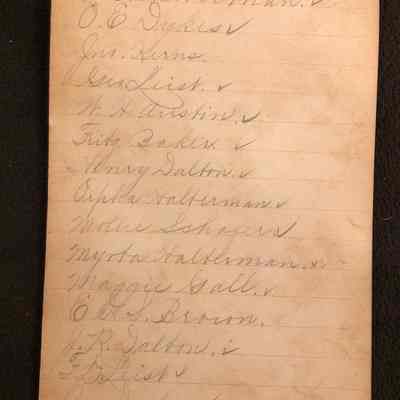 Halterman. ✓
O. E. Dykes ✓
Jno. Kerns.
Geo Leist. ✓
W. H. Austin. ✓
Fritz Baker ✓
Henry Dalton. ✓
Orpha Halterman ✓
Mollie Schafer ✓
Myrta Halterman. ✓
Maggie Gall. ✓
S. Brown.
J. R. Dalton. ✓
Leist ✓